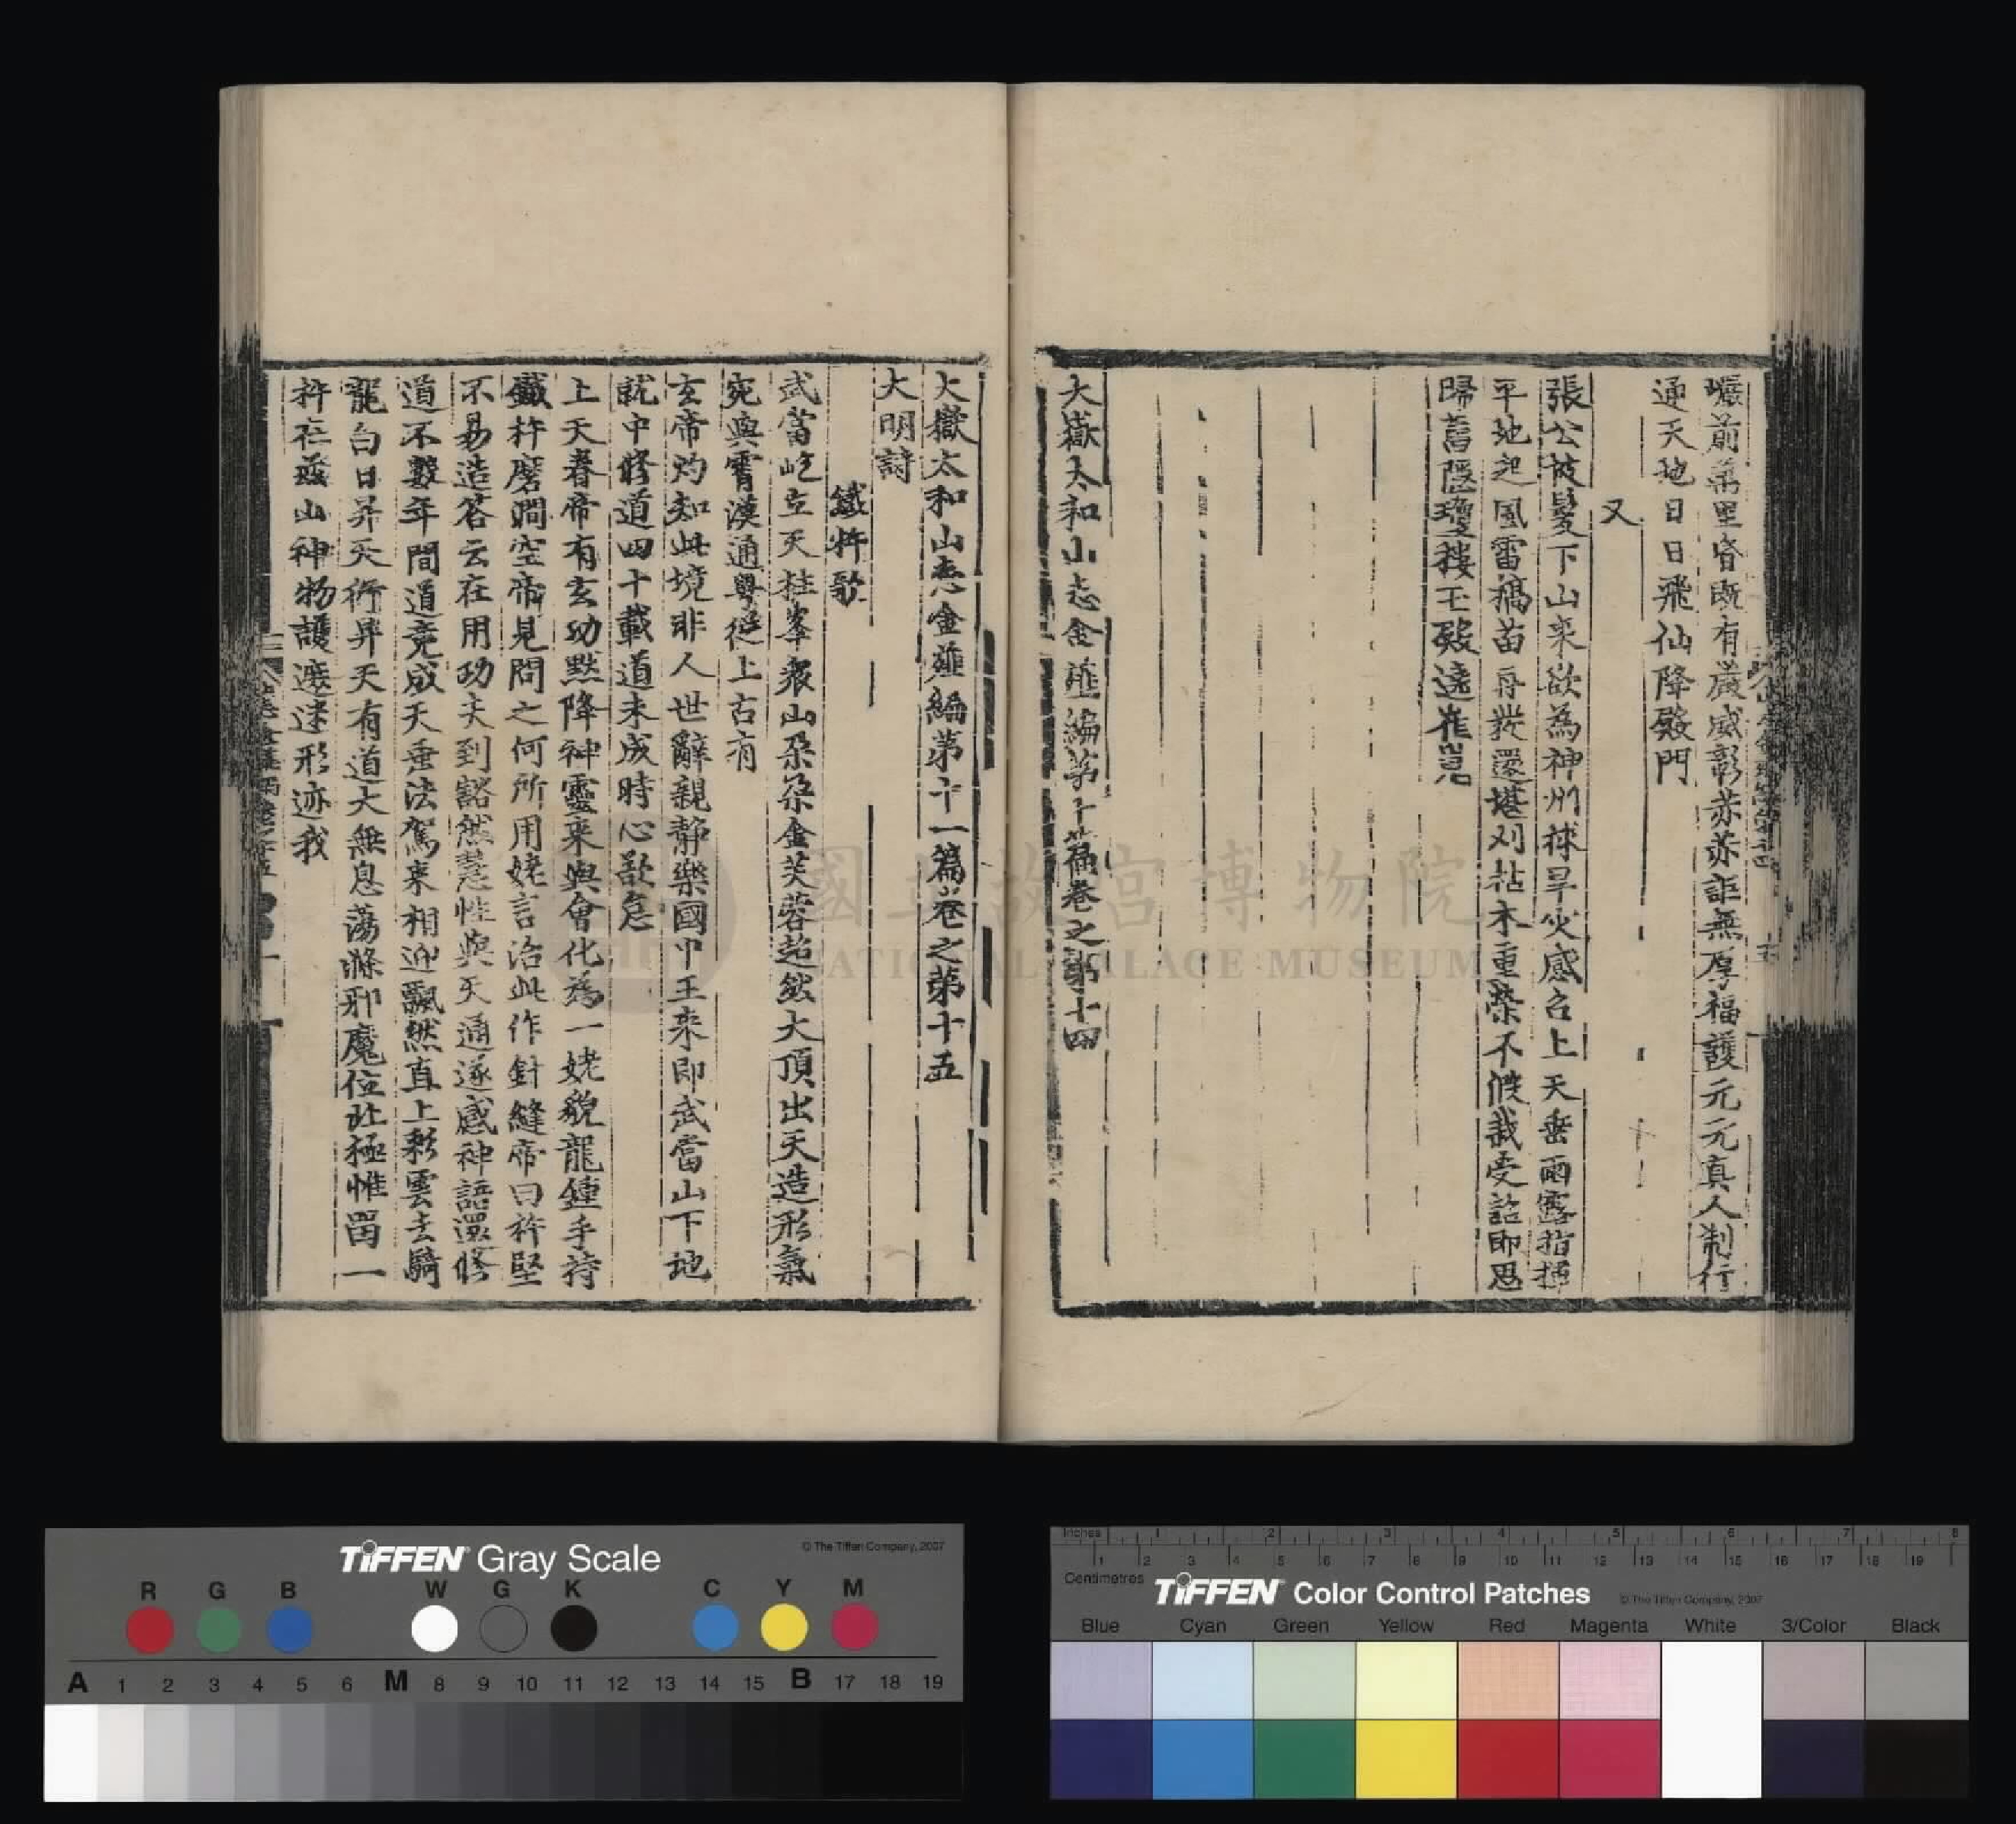 巖前萬里昏既有嚴威彰赤赤詎無厚福護元元真人制行
通天地日日飛仙降殿門
又
張公被髮下山來欲為神州捄旱灾感召上天垂雨露指揮
平地起風雷稿苗再發還堪刈枯木重榮不假栽受詔即思
歸舊隱瓊樓玉殿遶崔嵬
大嶽太和山志金薤編第十篇卷之第十四
大嶽太和山志金薤編第十一篇卷之第十五
大明詩
鐵杵歌
武當屹立天柱峯衆山朶朶金芙蓉超然大頂出天造形氣
宛與霄漢通粵從上古有
玄帝灼知此境非人世辭親靜樂國中王来即武當山下地
就中修道四十載道未成時心欲怠
上天眷帝有玄功黙降神靈来與會化為一姥貌龍鍾手持
鐵杵磨澗空帝見問之何所用姥言治此作針縫帝曰杵堅
不易造答云在用功夫到豁然慧性與天通遂感神語還修
道不數年間道竟成天垂法駕来相迎飄然直上彩雲去騎
龍白日昇天衢昇天有道大無息蕩滌邪魔位北極惟留一
杵在茲山神物護遮迷形迹我
國立故宮博物院
NATIONAL PALACE MUSEUM
TIFFEN Gray Scale
© The Tiffen Company, 2007
R G B W G K C Y M
A 1 2 3 4 5 6 M 8 9 10 11 12 13 14 15 B 17 18 19
Inches 1 2 3 4 5 6 7 8
1 2 3 4 5 6 7 8 9 10 11 12 13 14 15 16 17 18 19
Centimetres
TIFFEN Color Control Patches
© The Tiffen Company, 2007
Blue Cyan Green Yellow Red Magenta White 3/Color Black